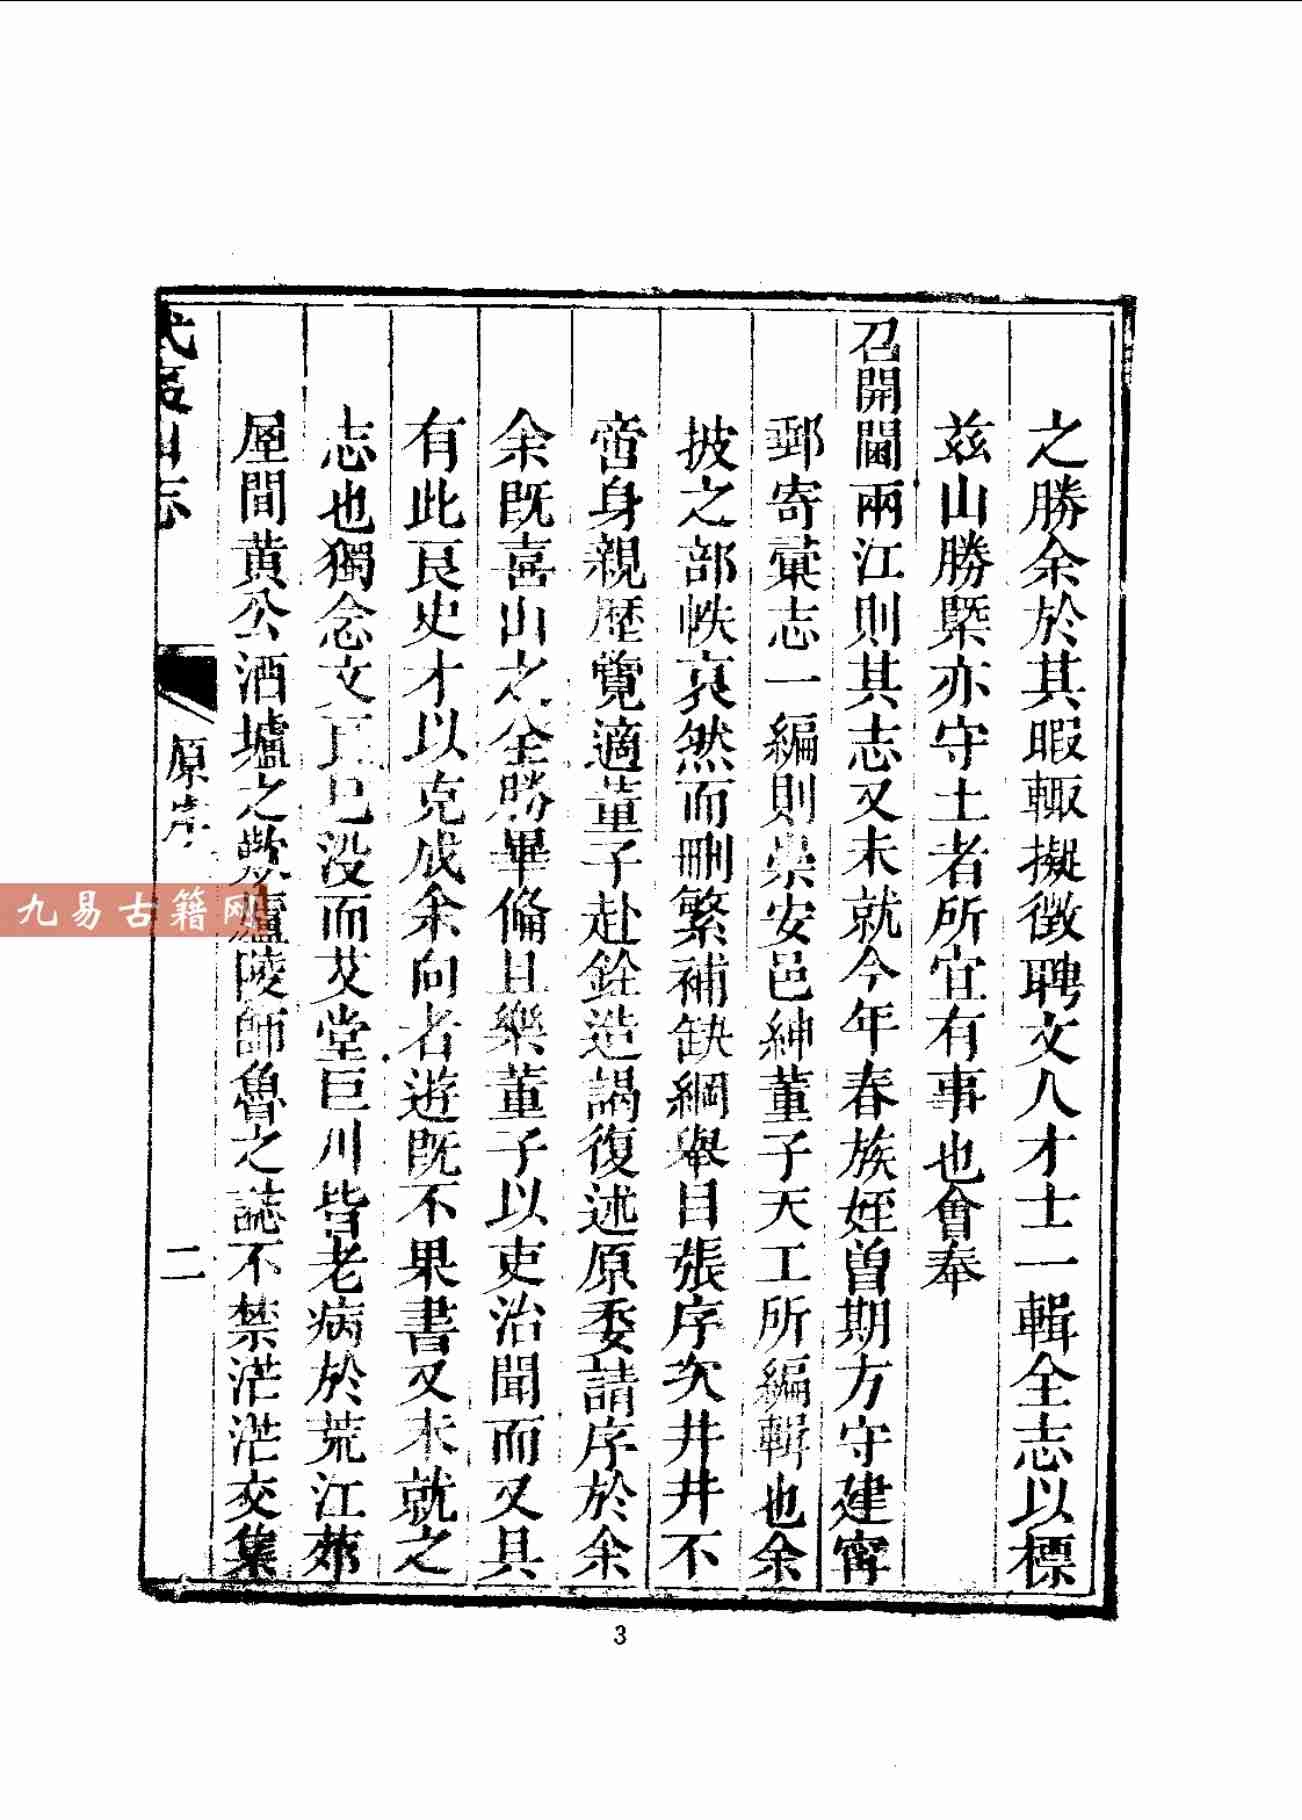 之勝余於其暇輙擬徵聘文人才士一輯全志以標
兹山勝槩亦守土者所宜有事也會奉
召開閫兩江則其志又未就今年春族姪曽期方守建寧
郵寄彚志一編則崇安邑紳董子天工所編輯也余
披之部帙裒然而刪繁補缺綱舉目張序次井井不
啻身親歷覽適董子赴銓造謁復述原委請序於余
余既喜山之全勝畢偹且樂董子以吏治聞而又具
有此良史才以克成余向者遊既不果書又未就之
志也獨念文已没而艾堂巨川皆老病於荒江茆
屋間黄公酒壚之歎廬陵師魯之誌不禁茫茫交集
武夷山志
原序
二
3
九易古籍网